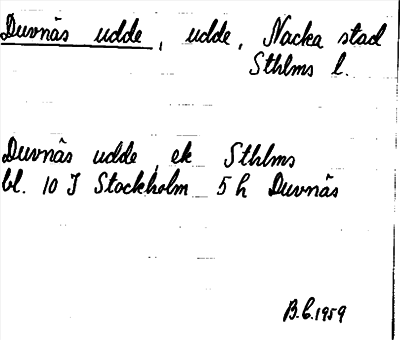 Duvnäs udde, udde, Nacka stad
Sthlms l.
Duvnäs udde, ek Sthlms
bl. 10 I Stockholm 5 h Duvnäs
B.C. 1959